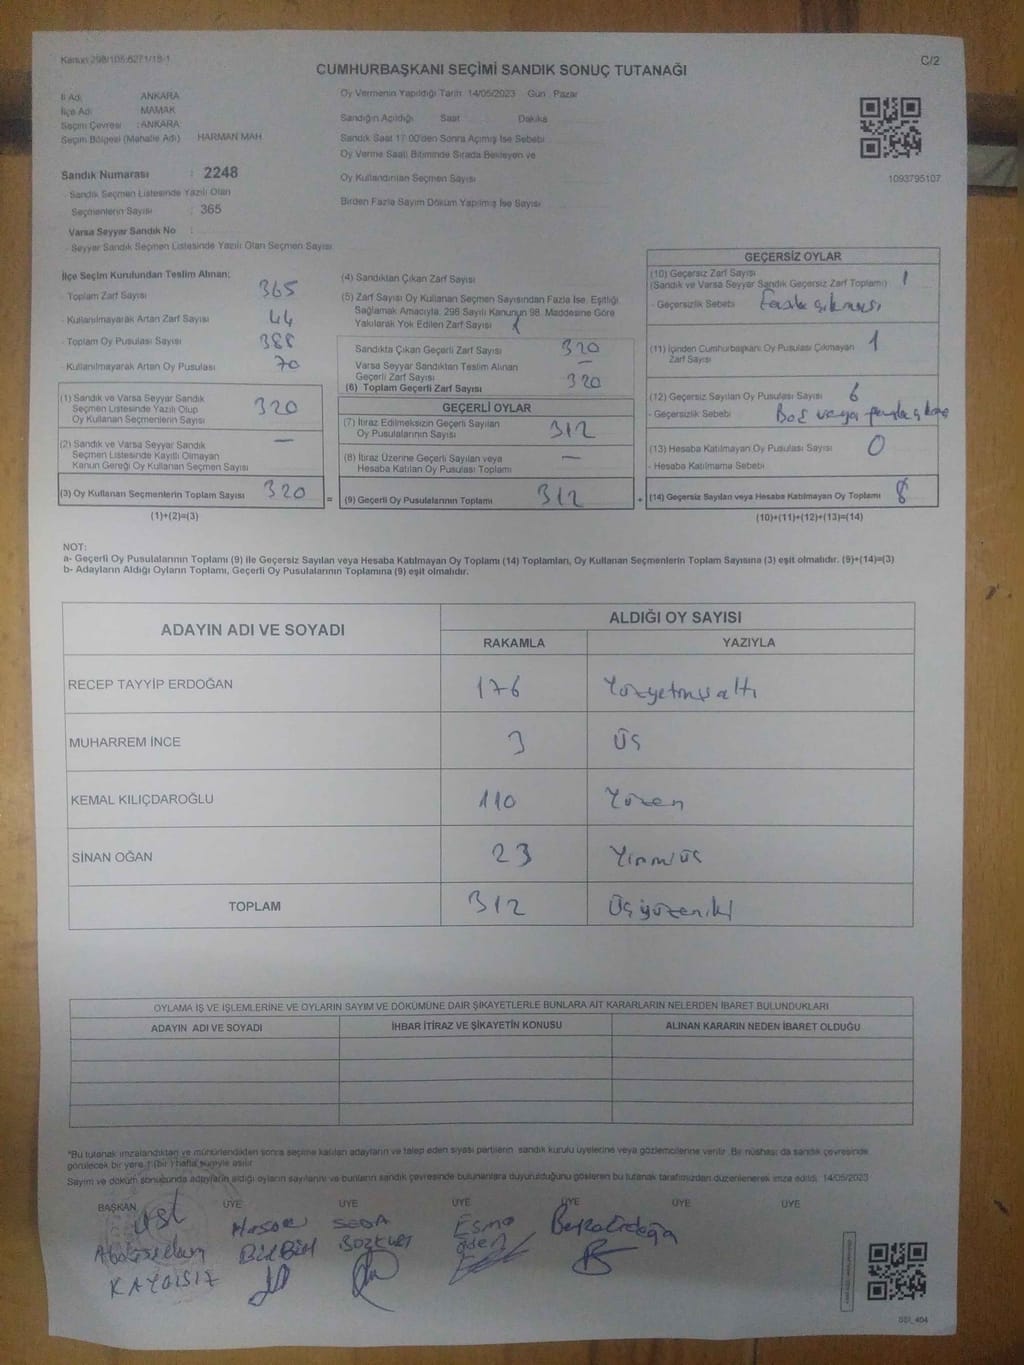 Kanun 298/105:6271/18-1
C/2
CUMHURBAŞKANI SEÇİMİ SANDIK SONUÇ TUTANAĞI
İl Adı ANKARA
İlçe Adı MAMAK
Seçim Çevresi : ANKARA
Seçim Bölgesi (Mahalle Adı) HARMAN MAH
Sandık Numarası : 2248
- Sandık Seçmen Listesinde Yazılı Olan
Seçmenlerin Sayısı : 365
Varsa Seyyar Sandık No :
- Seyyar Sandık Seçmen Listesinde Yazılı Olan Seçmen Sayısı
Oy Vermenin Yapıldığı Tarih 14/05/2023 Gün : Pazar
Sandığın Açıldığı Saat Dakika
Sandık Saat 17.00'den Sonra Açımış İse Sebebi
Oy Verme Saati Bitiminde Sırada Bekleyen ve
Oy Kullandırılan Seçmen Sayısı
Birden Fazla Sayım Döküm Yapılmış İse Sayısı
1093795107
İlçe Seçim Kurulundan Teslim Alınan:
- Toplam Zarf Sayısı 365
- Kullanılmayarak Artan Zarf Sayısı 44
- Toplam Oy Pusulası Sayısı 388
- Kullanılmayarak Artan Oy Pusulası 70
(1) Sandık ve Varsa Seyyar Sandık
Seçmen Listesinde Yazılı Olup
Oy Kullanan Seçmenlerin Sayısı 320
(2) Sandık ve Varsa Seyyar Sandık
Seçmen Listesinde Kayıtlı Olmayan
Kanun Gereği Oy Kullanan Seçmen Sayısı —
(3) Oy Kullanan Seçmenlerin Toplam Sayısı 320
(1)+(2)=(3)
(4) Sandıktan Çıkan Zarf Sayısı
(5) Zarf Sayısı Oy Kullanan Seçmen Sayısından Fazla İse, Eşitliği
Sağlamak Amacıyla, 298 Sayılı Kanunun 98. Maddesine Göre
Yakılarak Yok Edilen Zarf Sayısı 1
Sandıkta Çıkan Geçerli Zarf Sayısı 320
Varsa Seyyar Sandıktan Teslim Alınan
Geçerli Zarf Sayısı —
(6) Toplam Geçerli Zarf Sayısı 320
GEÇERLİ OYLAR
(7) İtiraz Edilmeksizin Geçerli Sayılan
Oy Pusulalarının Sayısı 312
(8) İtiraz Üzerine Geçerli Sayılan veya
Hesaba Katılan Oy Pusulası Toplamı —
= (9) Geçerli Oy Pusulalarının Toplamı 312 +
GEÇERSİZ OYLAR
(10) Geçersiz Zarf Sayısı
(Sandık ve Varsa Seyyar Sandık Geçersiz Zarf Toplamı) 1
- Geçersizlik Sebebi Fazla çıkması
(11) İçinden Cumhurbaşkanı Oy Pusulası Çıkmayan
Zarf Sayısı 1
(12) Geçersiz Sayılan Oy Pusulası Sayısı 6
- Geçersizlik Sebebi Boş veya
(13) Hesaba Katılmayan Oy Pusulası Sayısı 0
- Hesaba Katılmama Sebebi
(14) Geçersiz Sayılan veya Hesaba Katılmayan Oy Toplamı 8
(10)+(11)+(12)+(13)=(14)
NOT:
a- Geçerli Oy Pusulalarının Toplamı (9) ile Geçersiz Sayılan veya Hesaba Katılmayan Oy Toplamı (14) Toplamları, Oy Kullanan Seçmenlerin Toplam Sayısına (3) eşit olmalıdır. (9)+(14)=(3)
b- Adayların Aldığı Oyların Toplamı, Geçerli Oy Pusulalarının Toplamına (9) eşit olmalıdır.
ADAYIN ADI VE SOYADI ALDIĞI OY SAYISI
RAKAMLA YAZIYLA
RECEP TAYYİP ERDOĞAN 176 Yüzyetmişaltı
MUHARREM İNCE 3 Üç
KEMAL KILIÇDAROĞLU 110 Yüzon
SİNAN OĞAN 23 Yirmiüç
TOPLAM 312 Üçyüzoniki
OYLAMA İŞ VE İŞLEMLERİNE VE OYLARIN SAYIM VE DÖKÜMÜNE DAİR ŞİKAYETLERLE BUNLARA AİT KARARLARIN NELERDEN İBARET BULUNDUKLARI
ADAYIN ADI VE SOYADI İHBAR İTİRAZ VE ŞİKAYETİN KONUSU ALINAN KARARIN NEDEN İBARET OLDUĞU
*Bu tutanak imzalandıktan ve mühürlendikten sonra seçime katılan adayların ve talep eden siyasi partilerin sandık kurulu üyelerine veya gözlemcilerine verilir. Bir nüshası da sandık çevresinde
görülecek bir yere 1 (bir) hafta süreyle asılır
Sayım ve döküm sonucunda adayların aldığı oyların sayılarını ve bunların sandık çevresinde bulunanlara duyurulduğunu gösteren bu tutanak tarafımızdan düzenlenerek imza edildi. 14/05/2023
BAŞKAN ÜYE ÜYE ÜYE ÜYE ÜYE ÜYE
Hasan SEDA Esma
BİLBİL BOZKURT
KAYGISIZ
SSİ_404